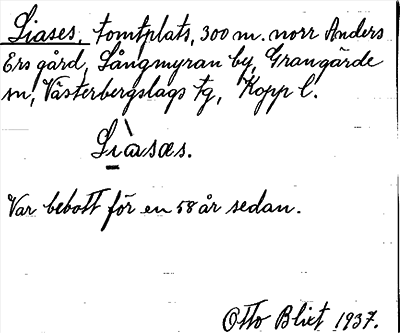 Liases, tomtplats, 300 m. norr Anders
Ers gård, Långmyran by, Grangärde
sn, Västerbergslags tg, Kopp l.
Lìasæs.
Var bebott för en 58 år sedan.
Otto Blixt 1937.